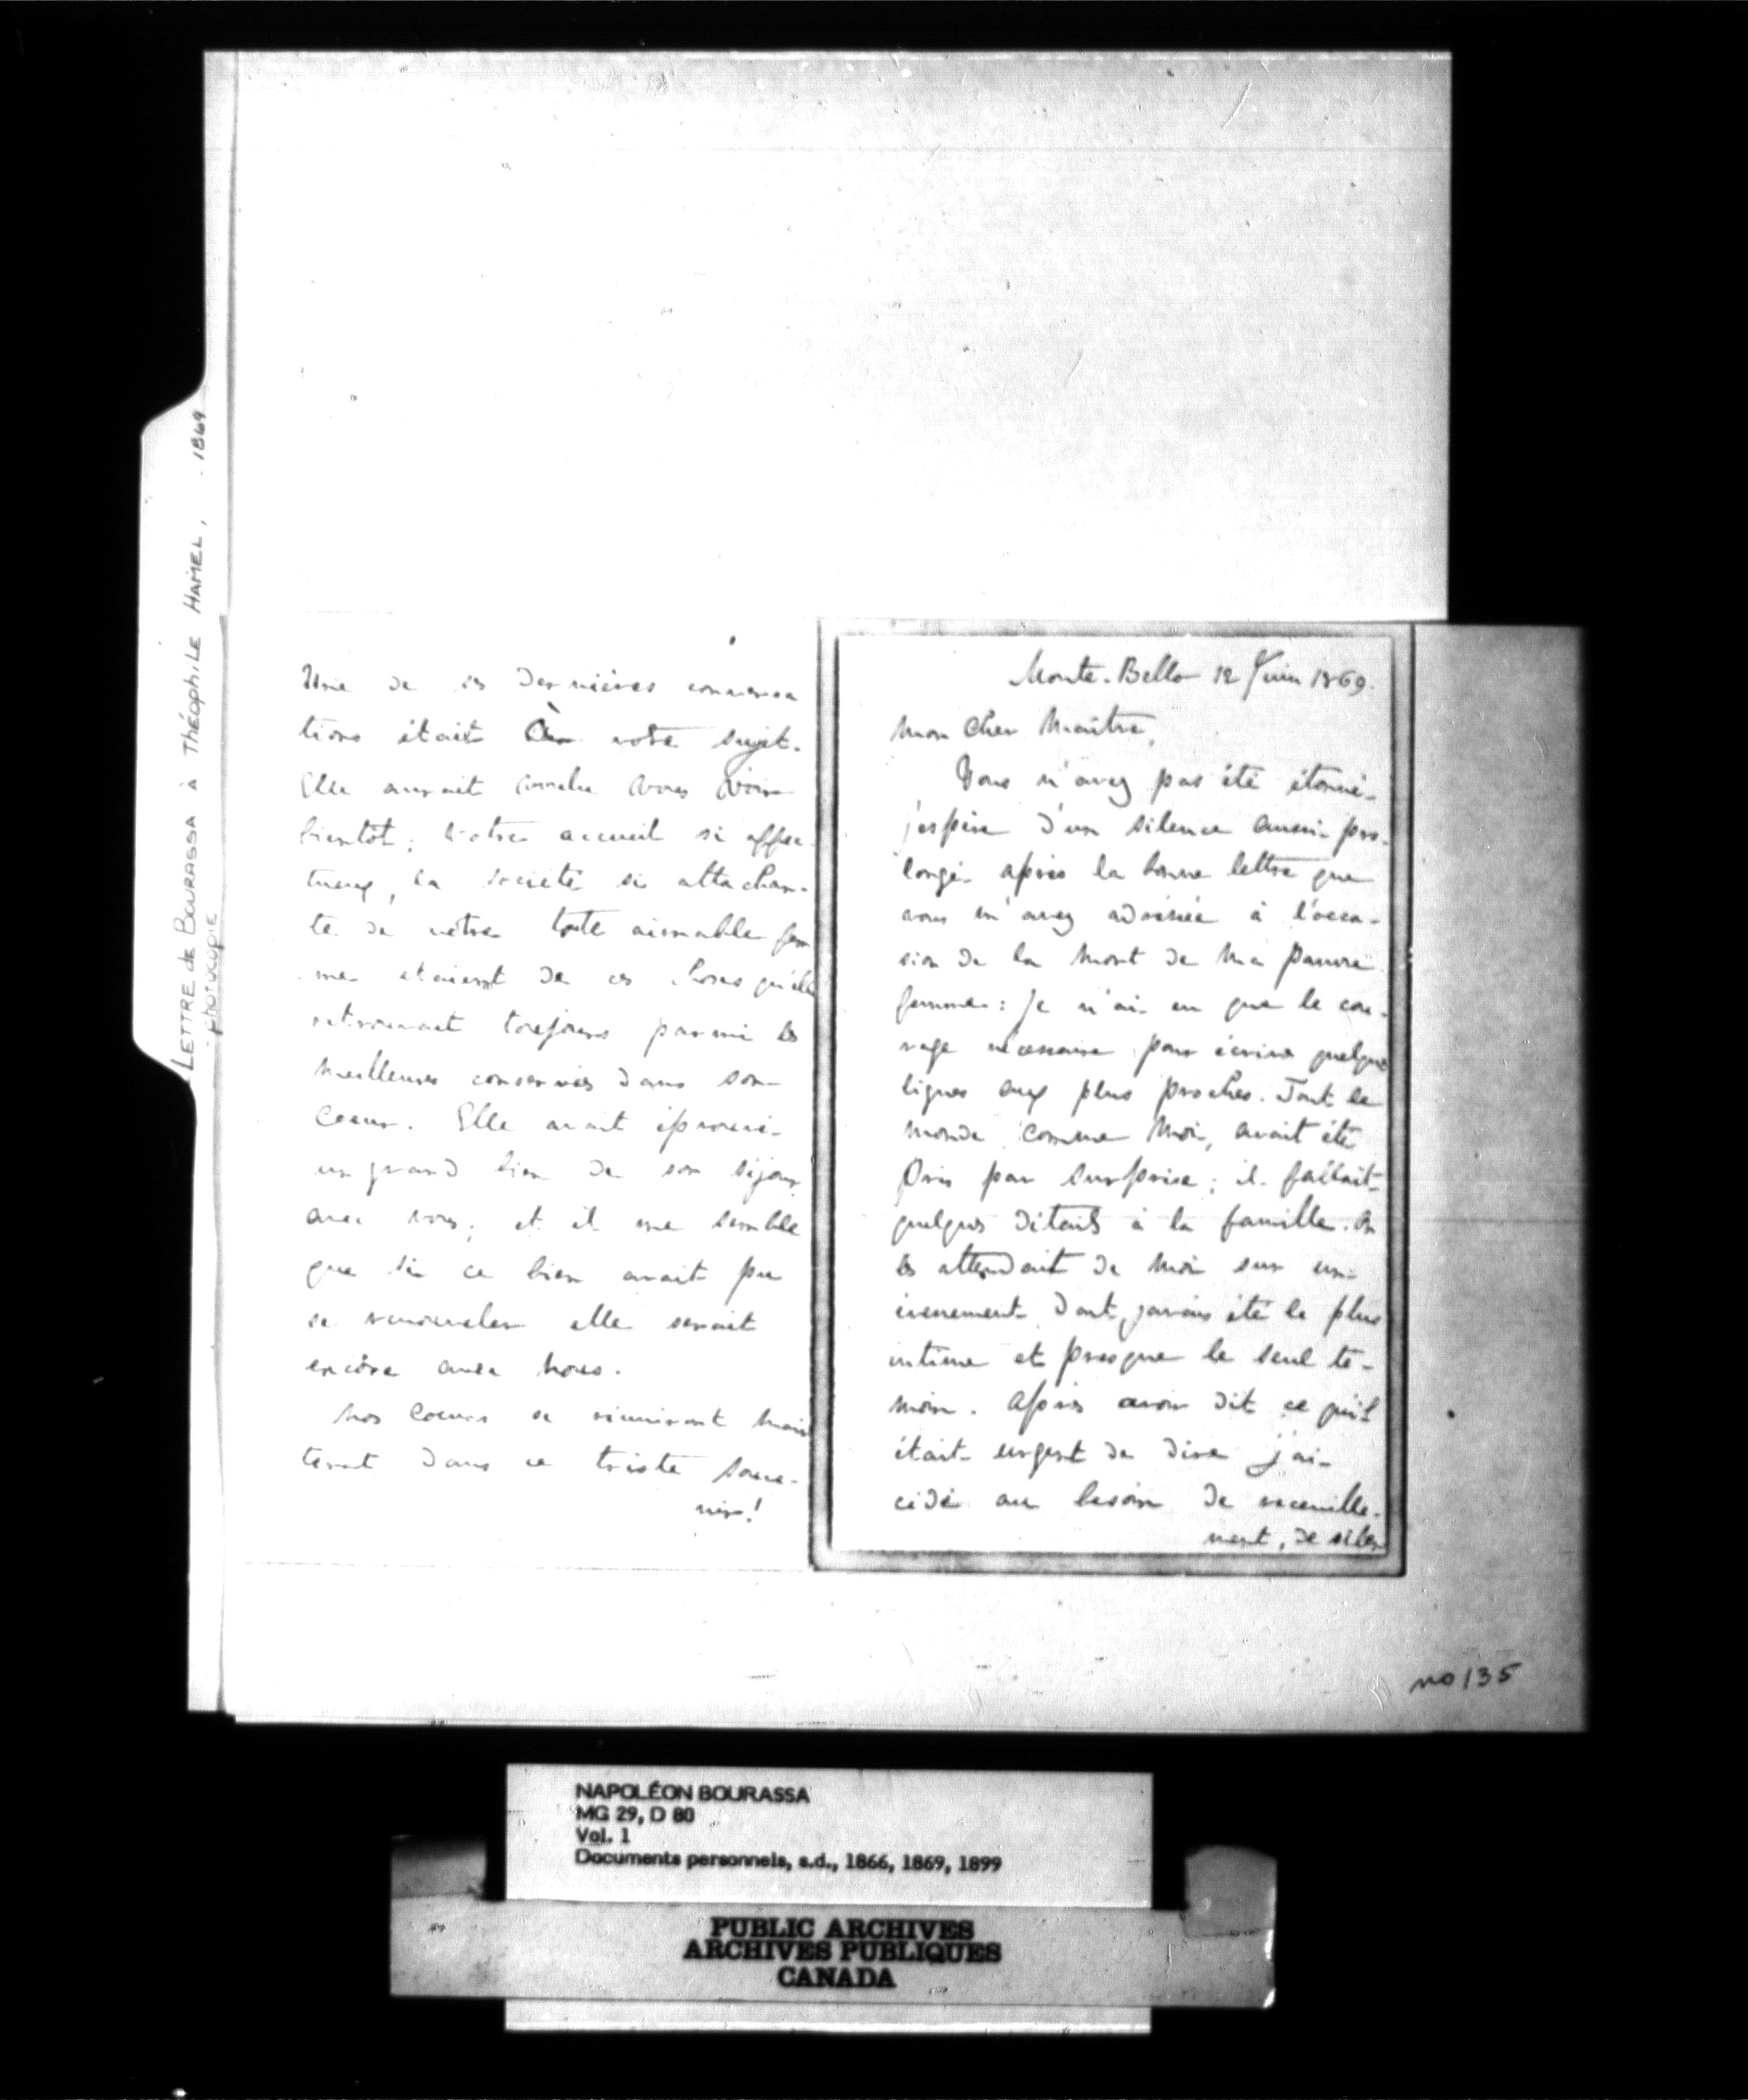 LETTRE de BOURASSA à THÉOPHILE HAMEL, 1869
PHOTOCOPIE
Une de ses dernières conversa
tions était à votre sujet.
Elle aurait voulu vous voir
bientôt; votre accueil si affec-
tueux, la société si attachan-
te de votre toute aimable fem
me etaient de ces choses qu'elle
retrouvait toujours parmi les
meilleures conservées dans son
Coeur. Elle avait éprouvé
un grand bien de son séjour
avec vous; et il me semble
que si ce bien avait pu
se renouveler elle serait
encôre avec nous.
Nos Coeurs se réuniront main
tenant dans ce triste souve-
nir!
Monte-Bello 12 Juin 1869.
Mon Cher Maître,
Vous n'avez pas été étonné
j'espère d'un silence aussi pro-
longé après la bonne lettre que
vous m'avez adressée à l'occa-
sion de la mort de ma pauvre
femme: je n'ai eu que le cou-
rage nécessaire pour écrire quelques
lignes aux plus proches. Tout le
monde comme moi, avait été
pris par surprise; il fallait
quelques détails à la famille. On
les attendait de moi sur un
évenement dont j'avais été le plus
intime et presque le seul té-
moin. Après avoir dit ce qu'il
était urgent de dire j'ai
cédé au besoin de receuille-
ment, de silen
no 135
NAPOLÉON BOURASSA
MG 29, D 80
Vol. 1
Documents personnels, s.d., 1866, 1869, 1899
PUBLIC ARCHIVES
ARCHIVES PUBLIQUES
CANADA